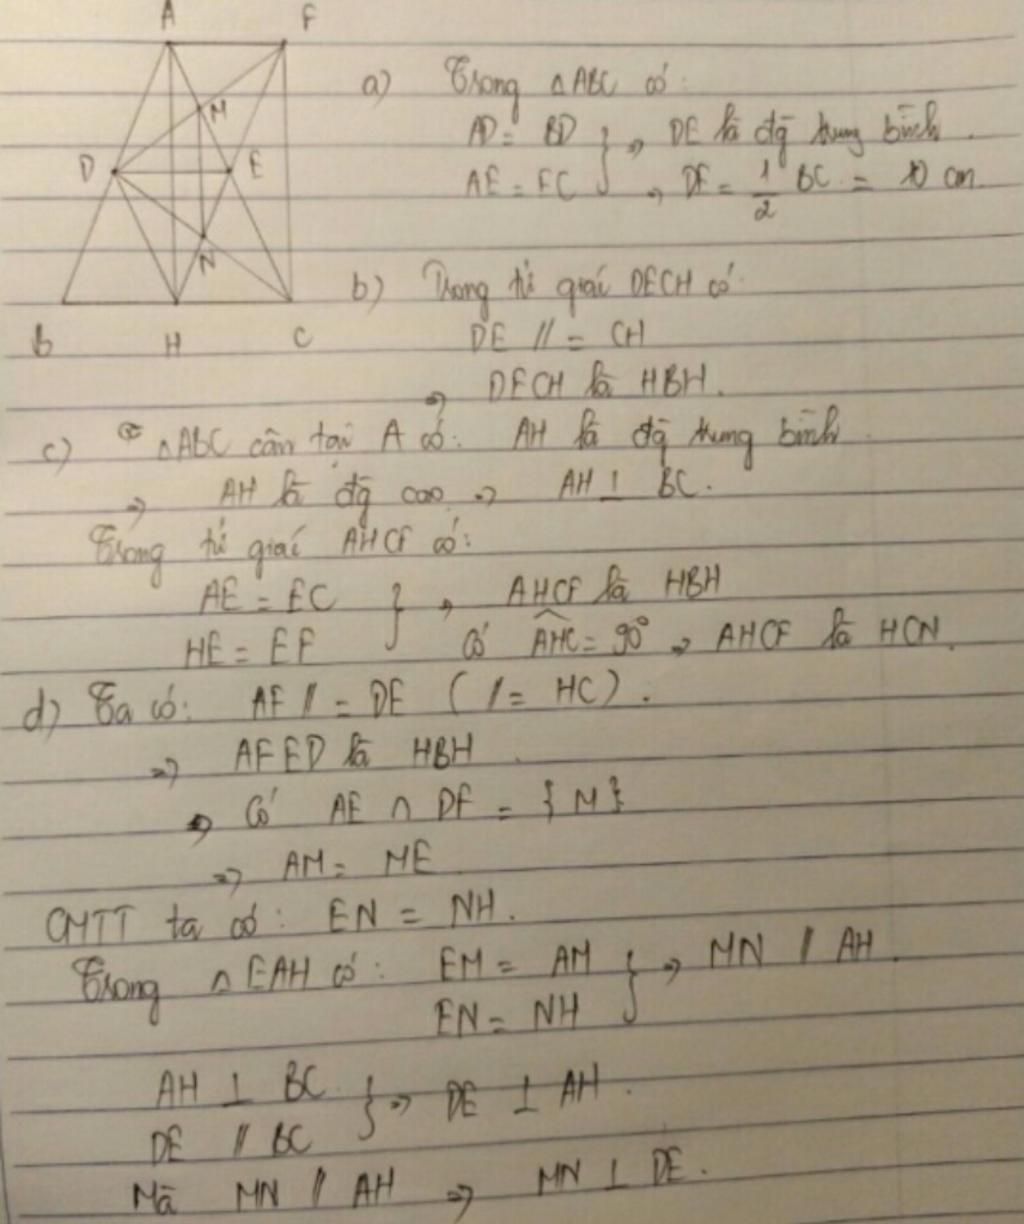 A F
M
D E
N
B H C
a) Trong △ABC có:
AD = BD } => DE là đg̃ trung bình.
AE = EC => DE = 1/2 BC = 10 cm
b) Trong tứ giác DECH có:
DE // = CH
=> DECH là HBH.
c) △ABC cân tại A có: AH là đg̃ trung bình
=> AH là đg̃ cao => AH ⊥ BC.
Trong tứ giác AHCF có:
AE = EC } => AHCF là HBH
HE = EF Có AHC = 90° => AHCF là HCN
d) Ta có: AF // = DE ( // = HC ).
=> AFED là HBH.
=> Có AE ∩ DF = {M}
=> AM = ME
CMTT ta có: EN = NH.
Trong △EAH có: EM = AM } => MN // AH.
EN = NH
AH ⊥ BC } => DE ⊥ AH.
DE // BC
Mà MN // AH => MN ⊥ DE.